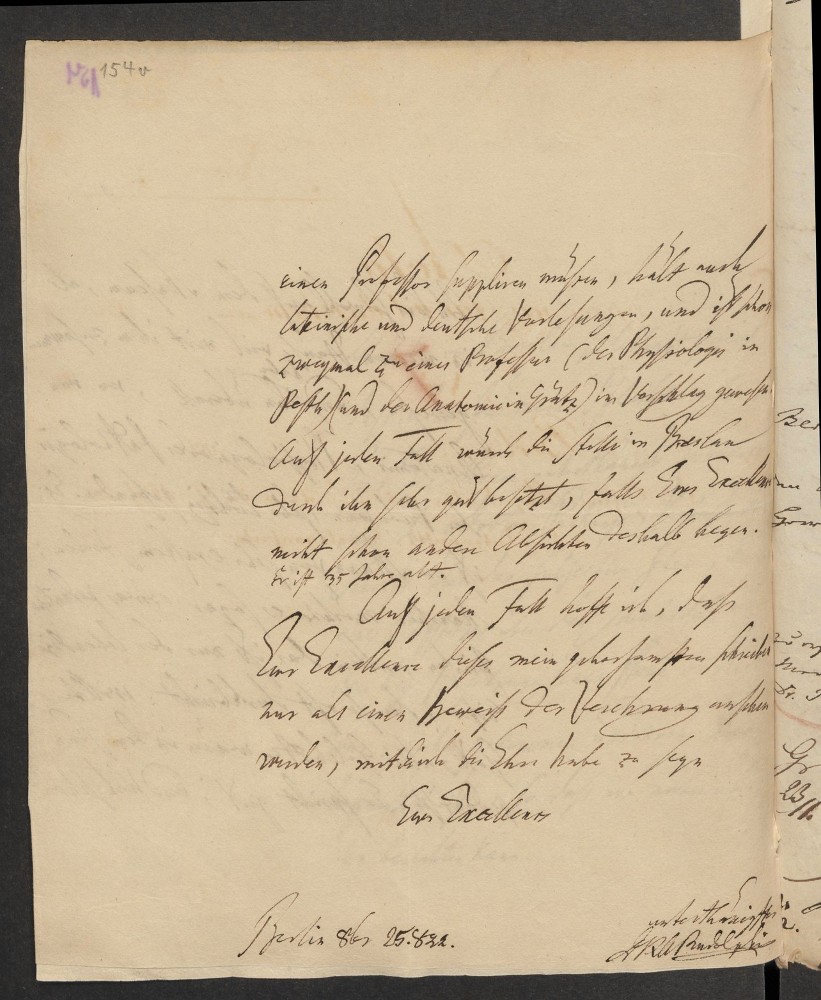 154v
einen Professor suppliren müssen, hält auch
lateinische und deutsche Vorlesungen, und ist schon
zweymal zu einer Professur (der Physiologie in
Pesth) (und der Anatomie in Grätz) im Vorschlag gewesen
Auf jeden Fall würde die Stelle in Breslau
durch ihn sehr gut besetzt, falls Eure Excellenz
nicht schon andere Absichten deshalb hegen.
Er ist 35 Jahre alt.
Auf jeden Fall hoffe ich, daß
Eure Excellence dieses mein gehorsamstes Schreiben
nur als einen Beweiß der Verehrung ansehen
werden, mit der ich die Ehre habe zu seyn
Eurer Excellence
unterthänigster
Berlin 8br 25. 822.
Rudolphi